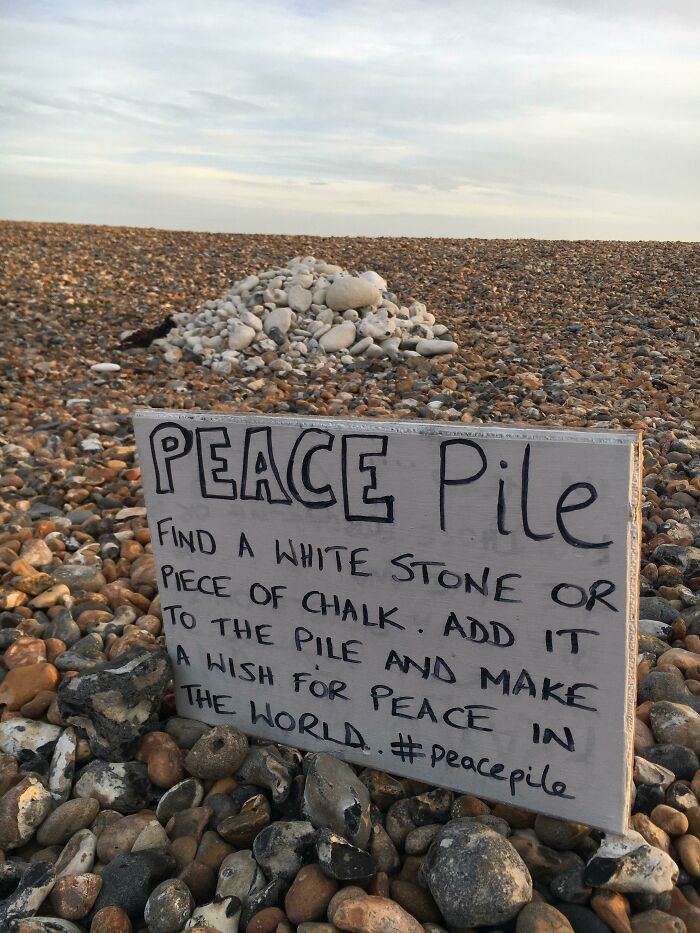 PEACE Pile
FIND A WHITE STONE OR
PIECE OF CHALK. ADD IT
TO THE PILE AND MAKE
A WISH FOR PEACE IN
THE WORLD. #peacepile